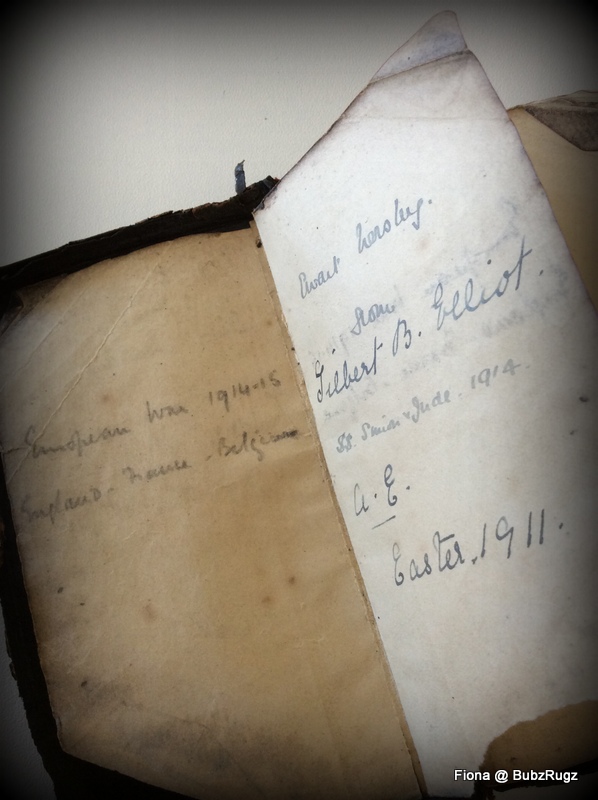 European War 1914-15
England - France - Belgium
from
Gilbert B. Elliot.
SS. Simon & Jude. 1914.
a. E.
Easter. 1911.
Fiona @ BubzRugz